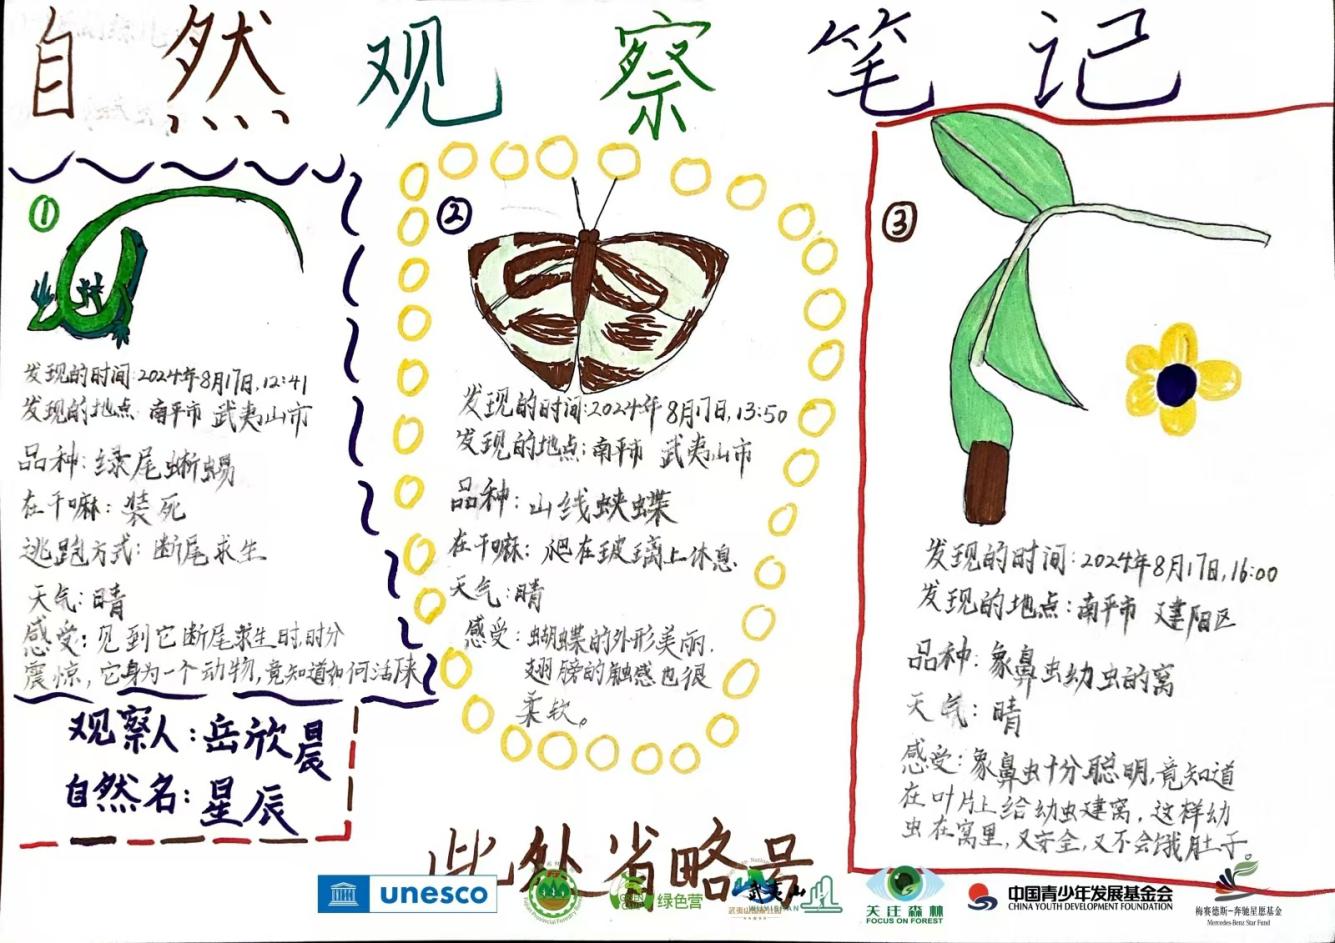 自然观察笔记
①
发现的时间:2024年8月17日,12:41
发现的地点:南平市 武夷山市
品种:绿尾蜥蜴
在干嘛:装死
逃跑方式:断尾求生
天气:晴
感受:见到它断尾求生时,时分
震惊,它身为一个动物,竟知道如何活下来
观察人:岳欣晨
自然名:星辰
②
发现的时间:2024年8月17日,13:50
发现的地点:南平市 武夷山市
品种:山线蛱蝶
在干嘛:爬在玻璃上休息.
天气:晴
感受:蝴蝶的外形美丽.
翅膀的触感也很
柔软。
③
发现的时间:2024年8月17日,16:00
发现的地点:南平市 建阳区
品种:象鼻虫幼虫的窝
天气:晴
感受:象鼻虫十分聪明,竟知道
在叶片上给幼虫建窝,这样幼
虫在窝里,又安全,又不会饿肚子。
此处省略号
unesco
绿色营
武夷山
关注森林
FOCUS ON FOREST
中国青少年发展基金会
CHINA YOUTH DEVELOPMENT FOUNDATION
梅赛德斯-奔驰星愿基金
Mercedes-Benz Star Fund